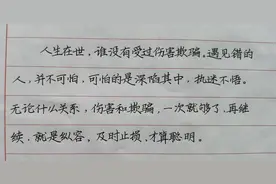 人生在世，谁没有受过伤害欺骗。遇见错的
人，并不可怕，可怕的是深陷其中，执迷不悟。
无论什么关系，伤害和欺骗，一次就够了，再继
续，就是纵容，及时止损，才算聪明。